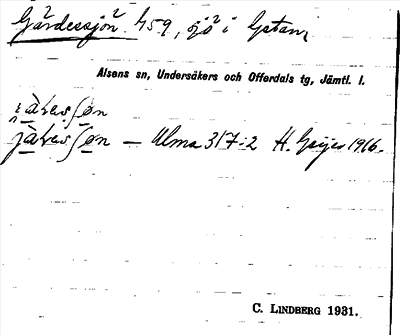 Gärdessjön. 459, sjö i Ystam,
Alsens sn, Undersåkers och Offerdals tg, Jämtl. l.
jàḷesʃøn
jàḷesʃøn — Ulma 317:2 H. Geijer 1916.
C. LINDBERG 1931.